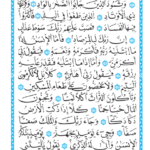 وَثَمُودَ الَّذِينَ جَابُوا الصَّخْرَ بِالْوَادِ وَفِرْعَوْنَ
ذِي الْأَوْتَادِ الَّذِينَ طَغَوْا فِي الْبِلَادِ فَأَكْثَرُوا
فِيهَا الْفَسَادَ فَصَبَّ عَلَيْهِمْ رَبُّكَ سَوْطَ عَذَابٍ
إِنَّ رَبَّكَ لَبِالْمِرْصَادِ فَأَمَّا الْإِنسَانُ إِذَا
مَا ابْتَلَاهُ رَبُّهُ فَأَكْرَمَهُ وَنَعَّمَهُ فَيَقُولُ رَبِّي
أَكْرَمَنِ وَأَمَّا إِذَا مَا ابْتَلَاهُ فَقَدَرَ عَلَيْهِ
رِزْقَهُ فَيَقُولُ رَبِّي أَهَانَنِ كَلَّا بَل لَّا تُكْرِمُونَ
الْيَتِيمَ وَلَا تَحَاضُّونَ عَلَى طَعَامِ الْمِسْكِينِ
وَتَأْكُلُونَ التُّرَاثَ أَكْلًا لَّمًّا وَتُحِبُّونَ
الْمَالَ حُبًّا جَمًّا كَلَّا إِذَا دُكَّتِ الْأَرْضُ
دَكًّا دَكًّا وَجَاءَ رَبُّكَ وَالْمَلَكُ صَفًّا صَفًّا
وَجِيءَ يَوْمَئِذٍ بِجَهَنَّمَ يَوْمَئِذٍ يَتَذَكَّرُ
الْإِنسَانُ وَأَنَّى لَهُ الذِّكْرَى يَقُولُ يَا لَيْتَنِي